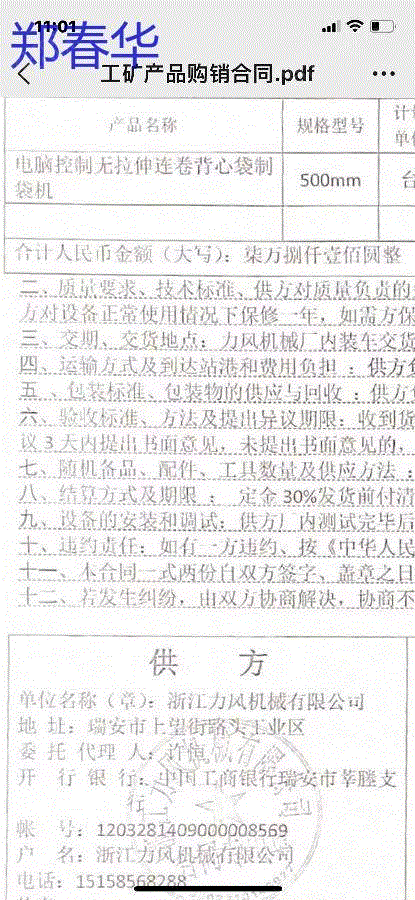 11:01
郑春华
工矿产品购销合同.pdf
产品名称 规格型号 计
单
电脑控制无拉伸连卷背心袋制
袋机 500mm 台
合计人民币金额（大写）：柒万捌仟壹佰圆整
二、质量要求、技术标准、供方对质量负责的
方对设备正常使用情况下保修一年，如需方保
三、交期、交货地点：力风机械厂内装车交货
四、运输方式及到达站港和费用负担：供方负
五 、包装标准、包装物的供应与回收：供方
六、验收标准、方法及提出异议期限：收到货
议 3 天内提出书面意见，未提出书面意见的，
七、随机备品、配件、工具数量及供应方法：
八、结算方式及期限 ： 定金 30%发货前付清
九、设备的安装和调试：供方厂内测试完毕后
十、违约责任：如有一方违约、按《中华人民
十一、本合同一式两份自双方签字、盖章之日
十二、若发生纠纷，由双方协商解决，协商不
供 方
单位名称（章）：浙江力风机械有限公司
地 址：瑞安市上望街路头工业区
委 托 代理 人：许恒
开 户 银 行：中国工商银行瑞安市莘塍支
行
帐 号：1203281409000008569
户 名：浙江力风机械有限公司
电话：15158568288